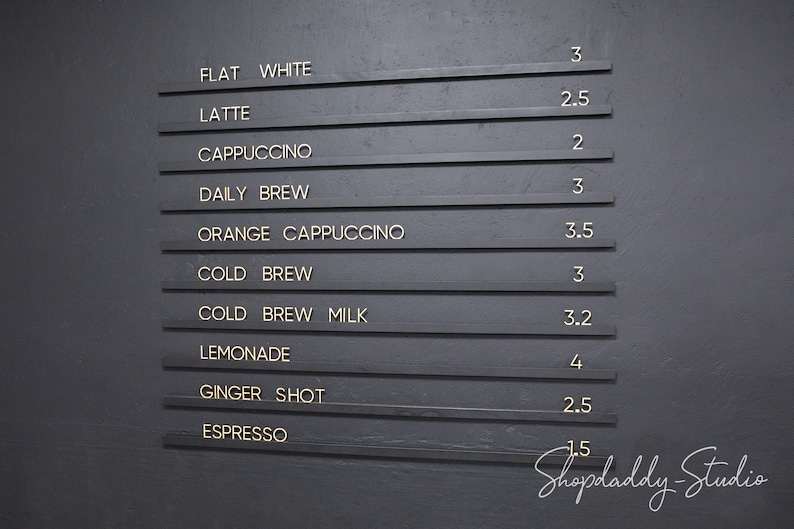 FLAT WHITE 3
LATTE 2.5
CAPPUCCINO 2
DAILY BREW 3
ORANGE CAPPUCCINO 3.5
COLD BREW 3
COLD BREW MILK 3.2
LEMONADE 4
GINGER SHOT 2.5
ESPRESSO 1.5
Shopdaddy-Studio